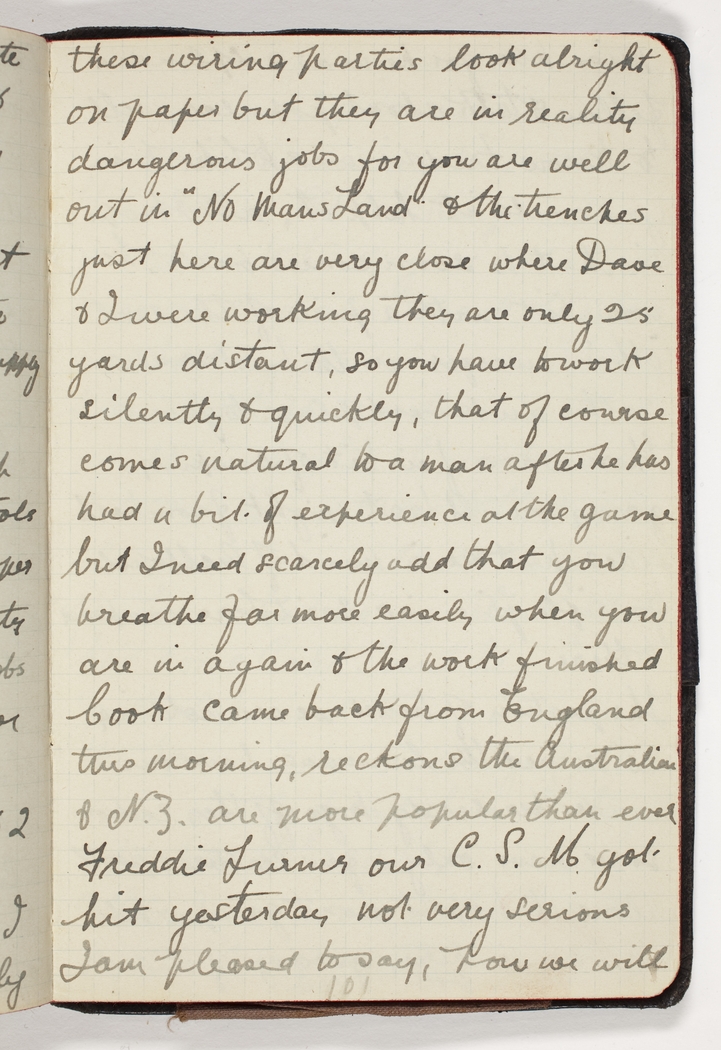 these wiring parties look alright
on paper but they are in reality
dangerous jobs for you are well
out in "No Mans Land" & the trenches
just here are very close where Dave
& I were working they are only 25
yards distant, so you have to work
silently & quickly, that of course
comes natural to a man after he has
had a bit of experience at the game
but I need scarcely add that you
breathe far more easily when you
are in again & the work finished
Cook came back from England
this morning, reckons the Australian
& N.Z. are more popular than ever
Freddie Turner our C. S. M. got
hit yesterday not very serious
I am pleased to say, how we will
101